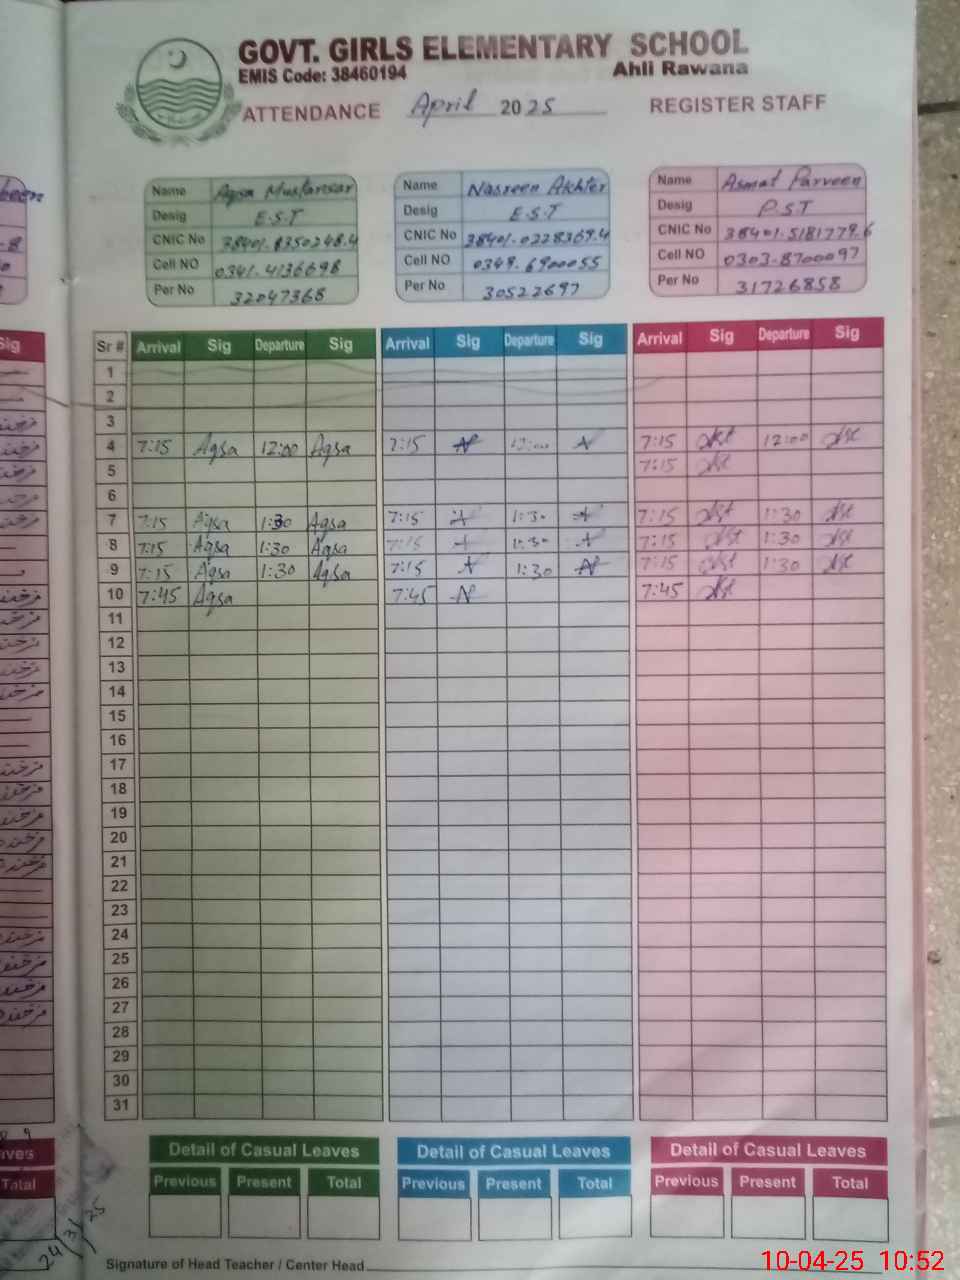 GOVT. GIRLS ELEMENTARY SCHOOL
EMIS Code: 38460194 Ahli Rawana
ATTENDANCE April 2025 REGISTER STAFF
Name Aqsa Mustansar Name Nasreen Akhter Name Asmat Parveen
Desig E.S.T Desig E.S.T Desig P.S.T
CNIC No 38401.8350248.4 CNIC No 38401.0228369.4 CNIC No 38401.5181779.6
Cell NO 0341.4136698 Cell NO 0349.6900055 Cell NO 0303-8700097
Per No 32047368 Per No 30522697 Per No 31726858
Sr # Arrival Sig Departure Sig Arrival Sig Departure Sig Arrival Sig Departure Sig
1
2
3
4 7:15 Aqsa 12:00 Aqsa 7:15 12:00 7:15 12:00
5 7:15
6
7 7:15 Aqsa 1:30 Aqsa 7:15 1:30 7:15 1:30
8 7:15 Aqsa 1:30 Aqsa 7:15 1:30 7:15 1:30
9 7:15 Aqsa 1:30 Aqsa 7:15 1:30 7:15 1:30
10 7:45 Aqsa 7:45 7:45
11
12
13
14
15
16
17
18
19
20
21
22
23
24
25
26
27
28
29
30
31
Detail of Casual Leaves Detail of Casual Leaves Detail of Casual Leaves
Previous Present Total Previous Present Total Previous Present Total
Total
24/3/25
Signature of Head Teacher / Center Head
10-04-25 10:52